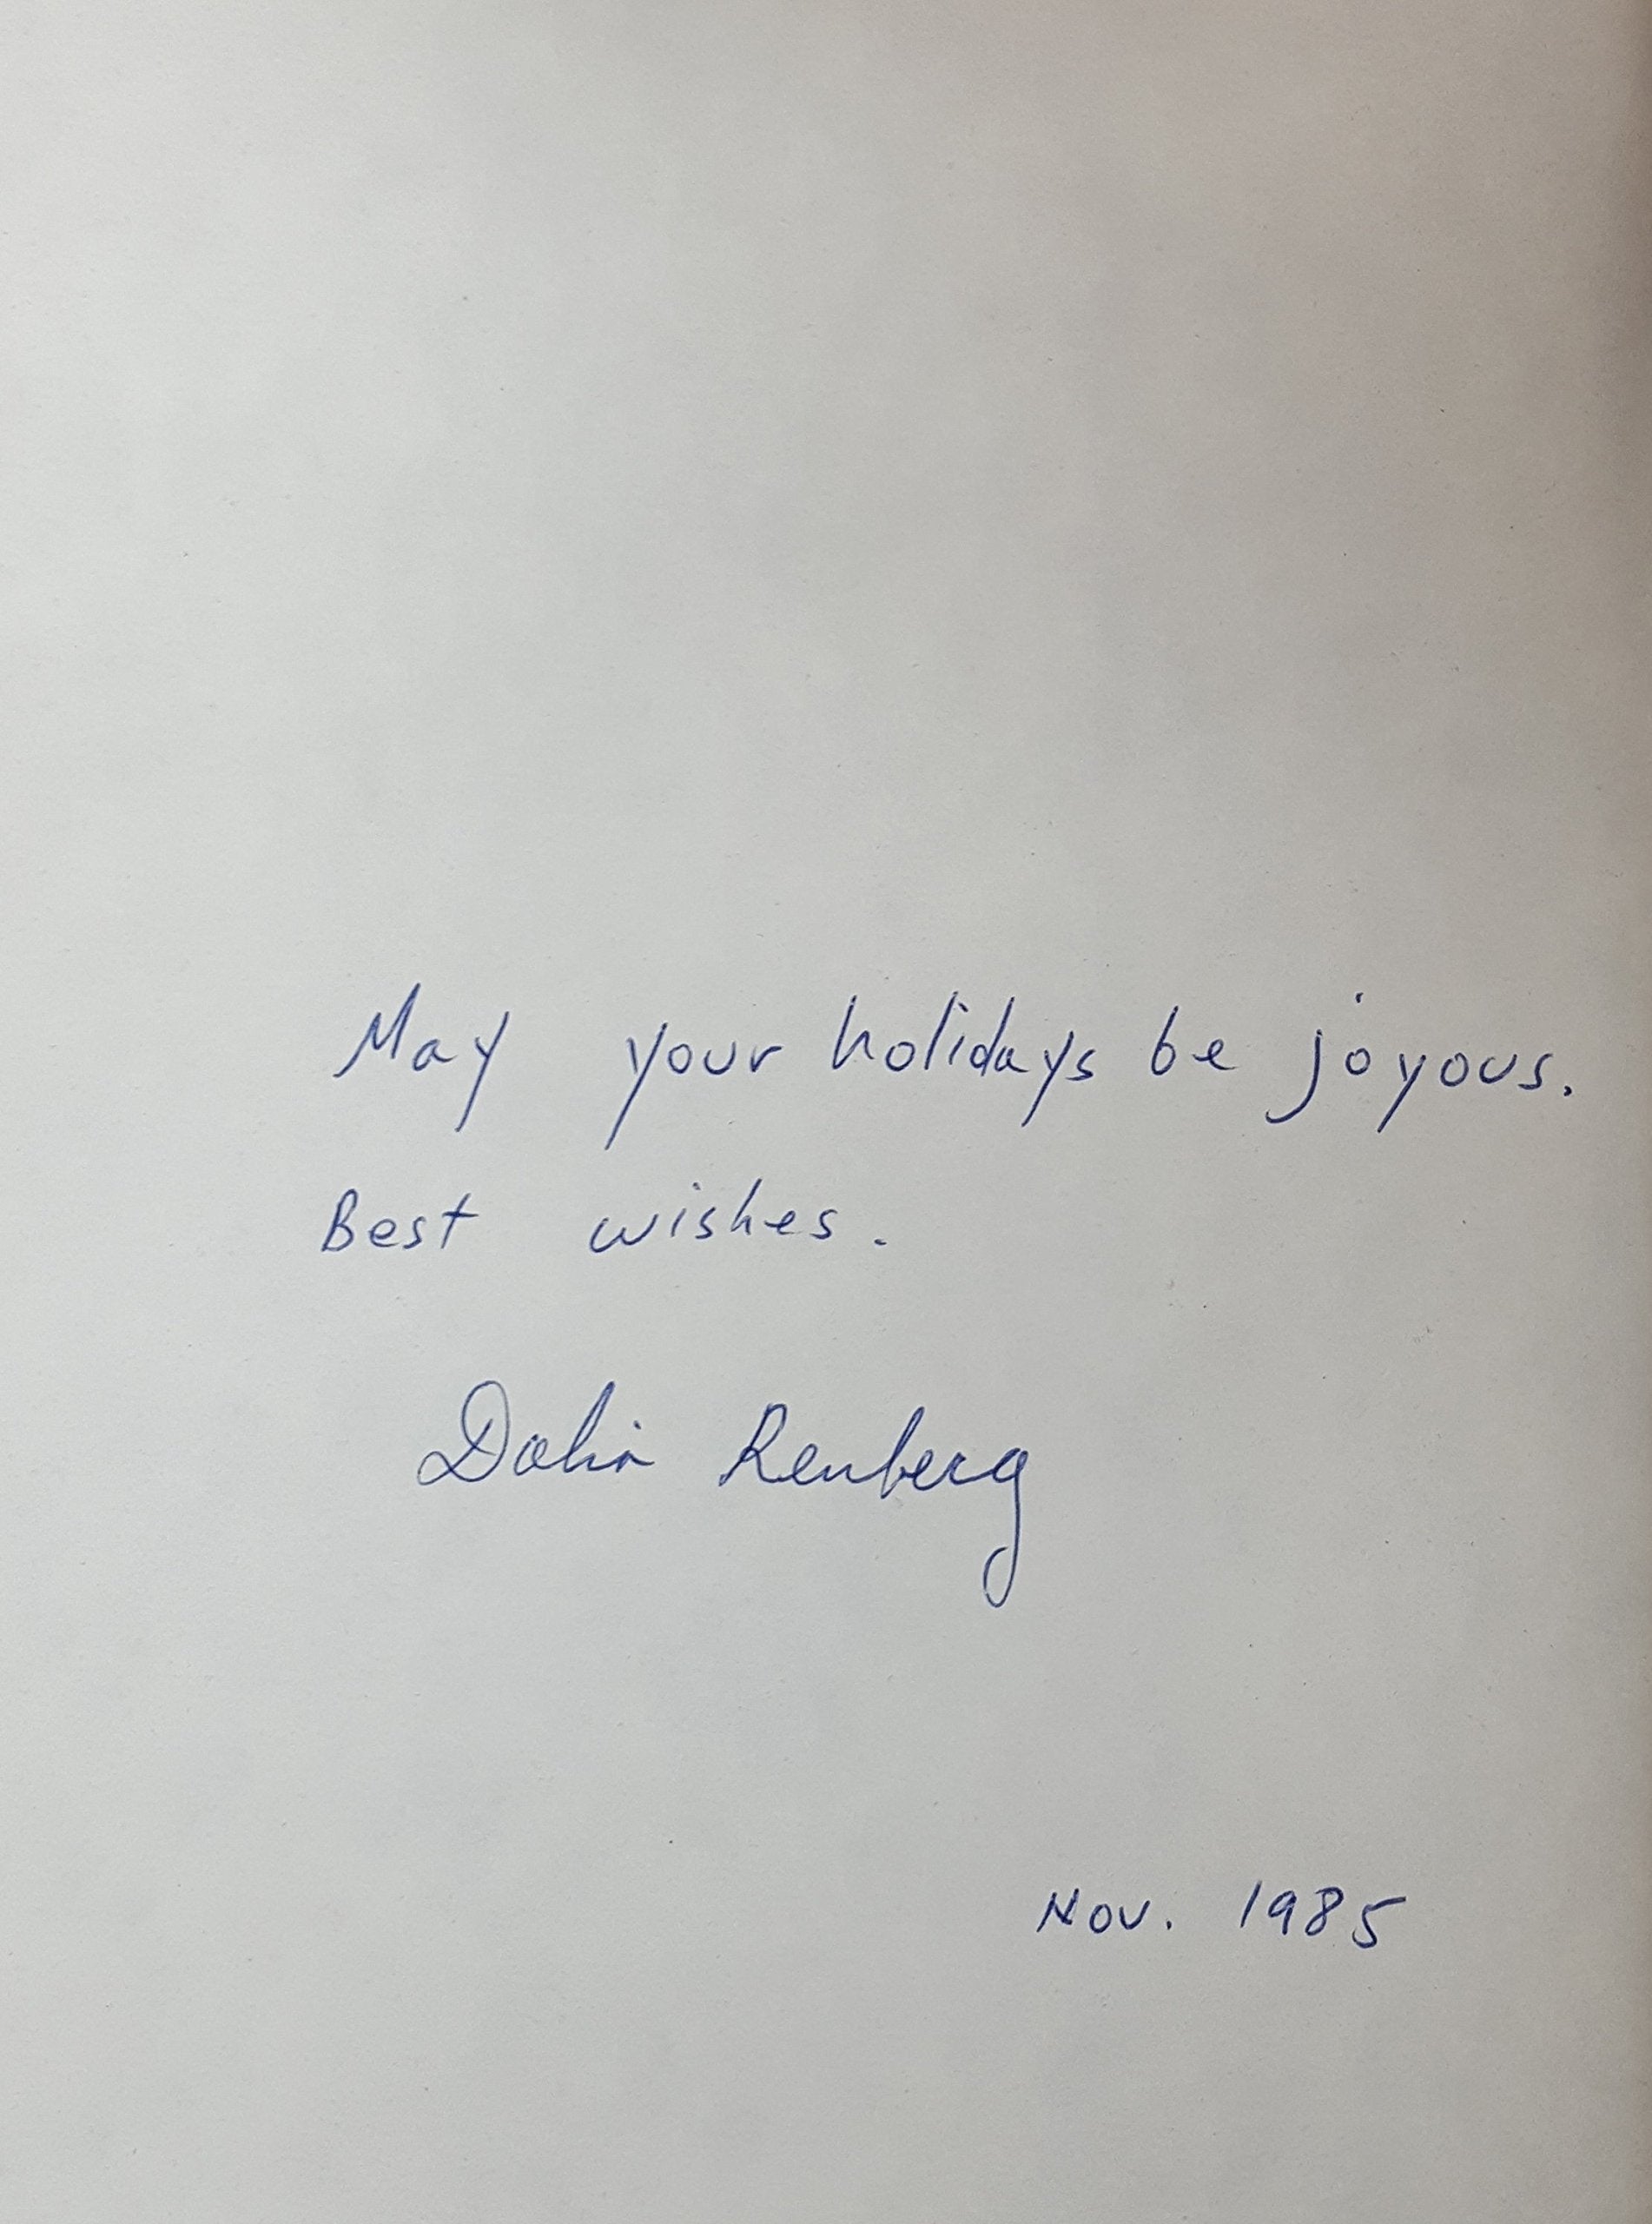 May your holidays be joyous.
Best wishes.
Dalia Renberg
Nov. 1985